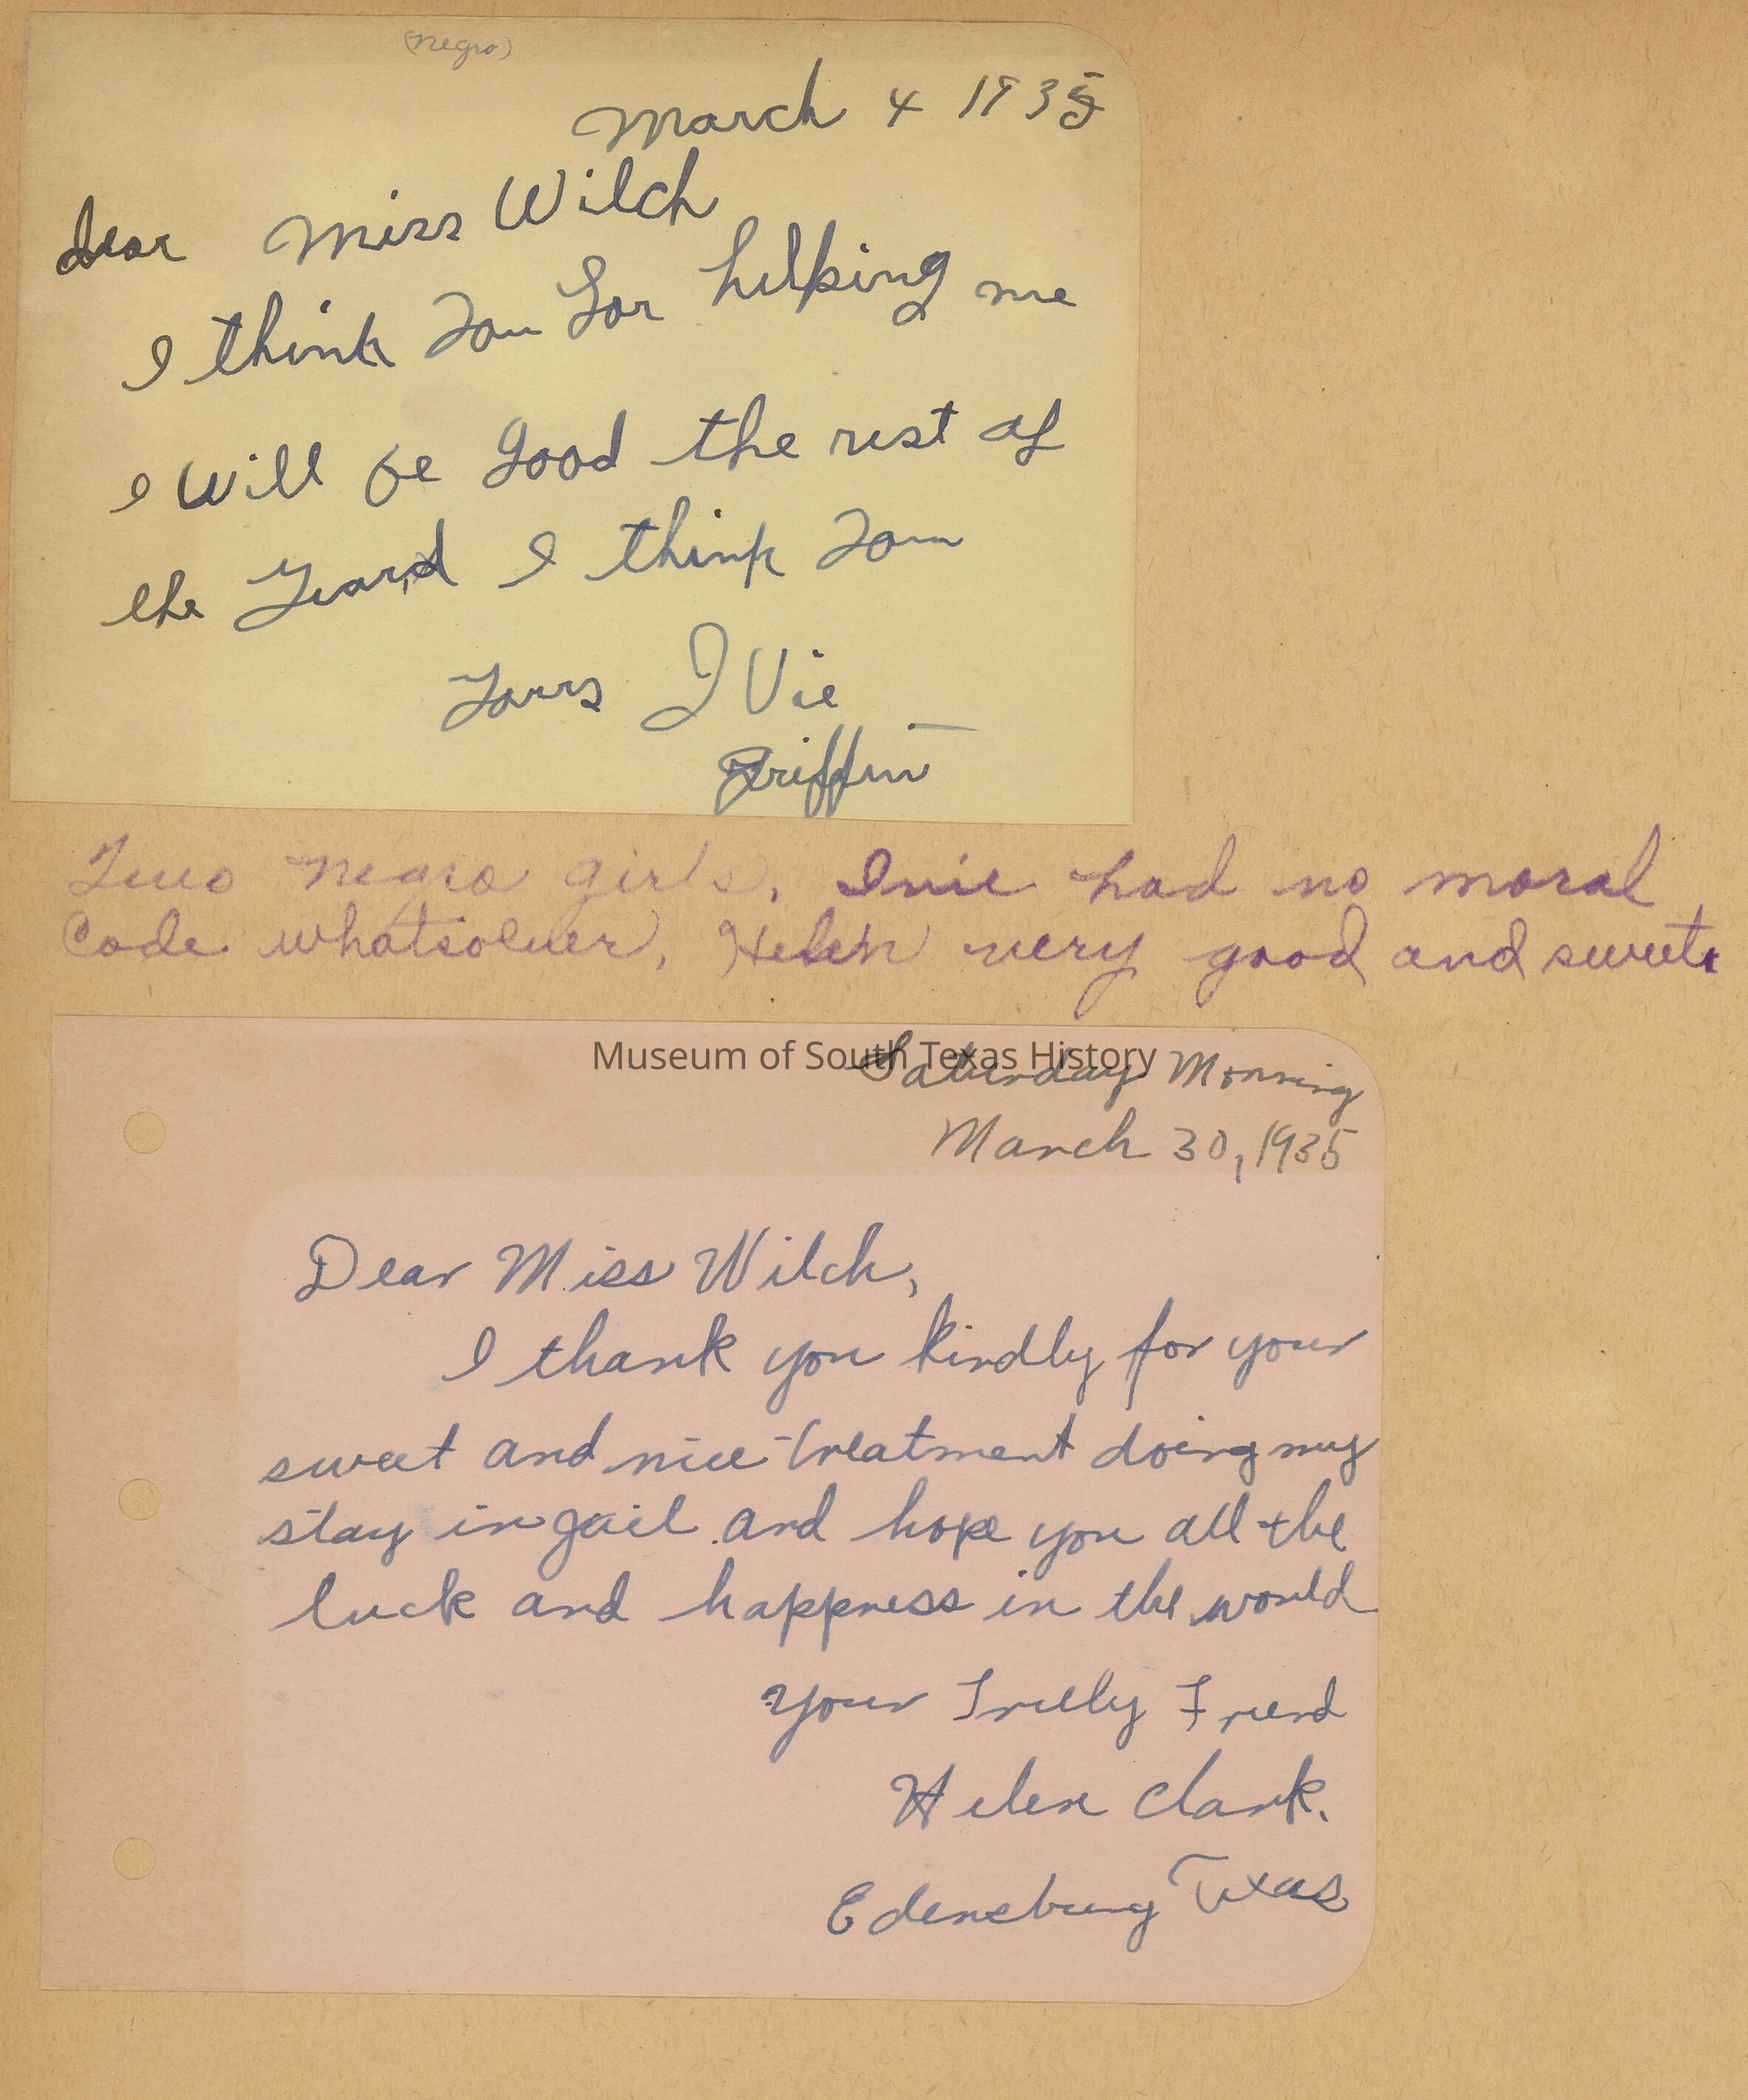 (negro)
March 4 1935
dear Miss Wilch
I think you for helping me
I will be good the rest of
the Yeard I think you
yours I Vie
Griffin
Two negro girls. Inie had no moral
Code whatsoever, Helen very good and sweet.
Museum of South Texas History
Saturday Morning
March 30, 1935
Dear Miss Wilch,
I thank you kindly for your
sweet and nice treatment doing my
stay in jail and hope you all the
luck and happness in the would
Your Trully Friend
Helen Clark.
Edensburg Texas